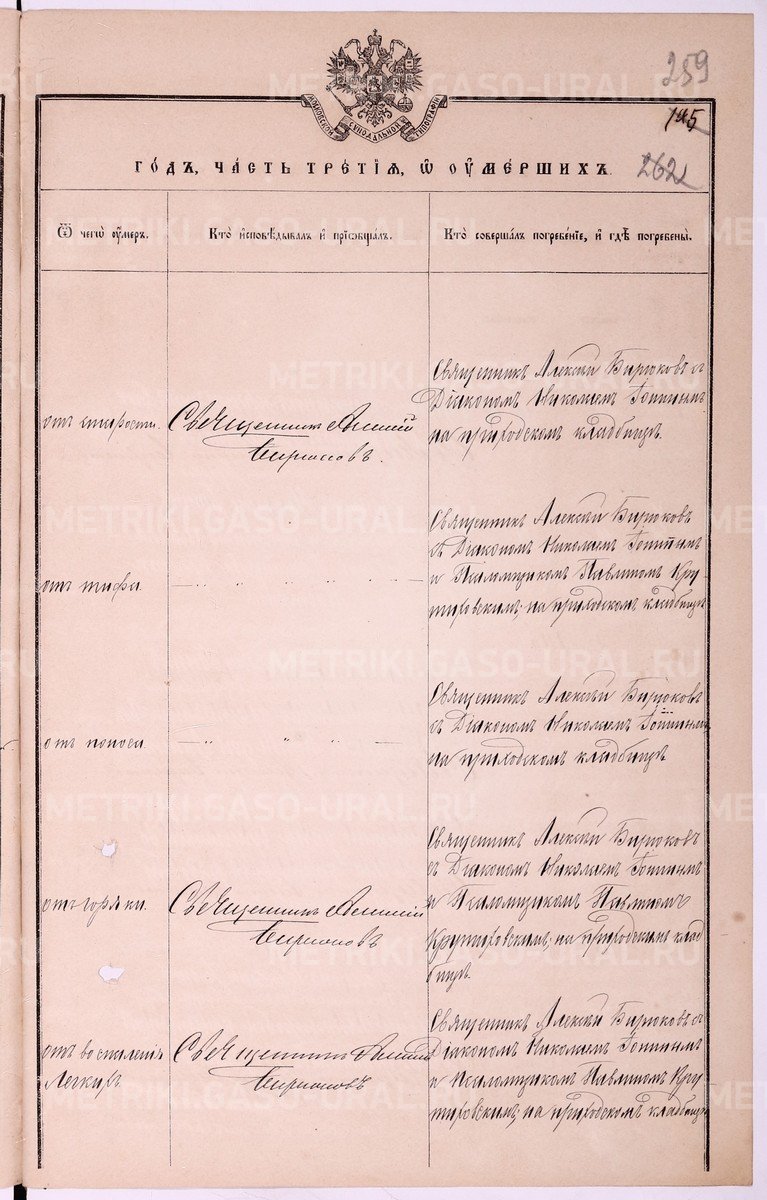 259
195
262
МОСКОВСКОЙ СѴНОДАЛЬНОЙ ТИПОГРАФІИ
ГО́ДЪ, ЧА́СТЬ ТРЕ́ТІѦ, Ѡ ОУМЕ́РШИХЪ.
Ѿ чегѡ̀ оу́меръ.
Кто̀ и҆сповѣ́дывалъ и҆ прїѡбща́лъ.
Кто̀ соверша́лъ погребе́нїе, и҆ гдѣ̀ погребены̀.
отъ старости.
Священникъ Алексій
Бирюковъ.
Священникъ Алексѣй Бирюковъ съ
Діакономъ Николаемъ Топинымъ
на приходскомъ кладбищѣ.
отъ тифа.
— „ „ „ „ —
Священникъ Алексѣй Бирюковъ
съ Діакономъ Николаемъ Топинымъ
и Псаломщикомъ Павлиномъ Кру
тировскимъ, на приходскомъ кладбищѣ
отъ поноса.
— „ „ „ —
Священникъ Алексѣй Бирюковъ
съ Діакономъ Николаемъ Топинымъ
на приходскомъ кладбищѣ.
отъ горячки.
Священникъ Алексій
Бирюковъ
Священникъ Алексѣй Бирюковъ
съ Діакономъ Николаемъ Топинымъ
и Псаломщикомъ Павлиномъ
Крутировскимъ, на приходскимъ клад
бищѣ.
отъ воспаленія
Легкихъ
Священникъ Алексій
Бирюковъ
Священникъ Алексѣй Бирюковъ съ
Діакономъ Николаемъ Топинымъ
и Псаломщикомъ Павлиномъ Кру
тировскимъ, на приходскомъ кладбищѣ
METRIKI.GASO-URAL.RU